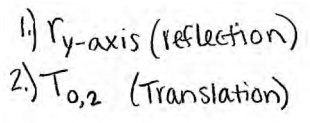 1.) r y-axis (reflection)
2.) T 0,2 (Translation)